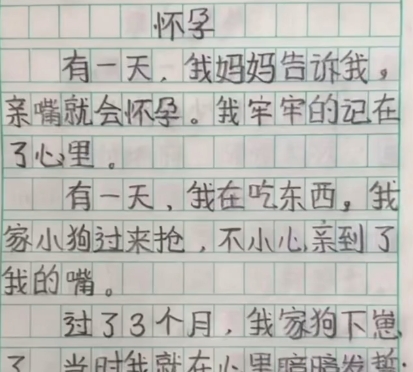 怀孕
有一天，我妈妈告诉我，
亲嘴就会怀孕。我牢牢的记在
了心里。
有一天，我在吃东西，我
家小狗过来抢，不小心亲到了
我的嘴。
过了3个月，我家狗下崽
了 当时我就在心里暗暗发誓